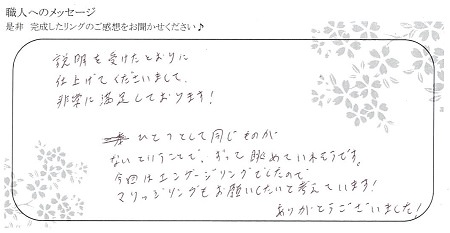 職人へのメッセージ
是非 完成したリングのご感想をお聞かせください♪
説明を受けたとおりに
仕上げてくださいまして、
非常に満足しております！
ひとつとして同じものが
ないということで、ずっと眺めていれそうです。
今回はエンゲージリングでしたので
マリッジリングもお願いしたいと考えています！
ありがとうございました！